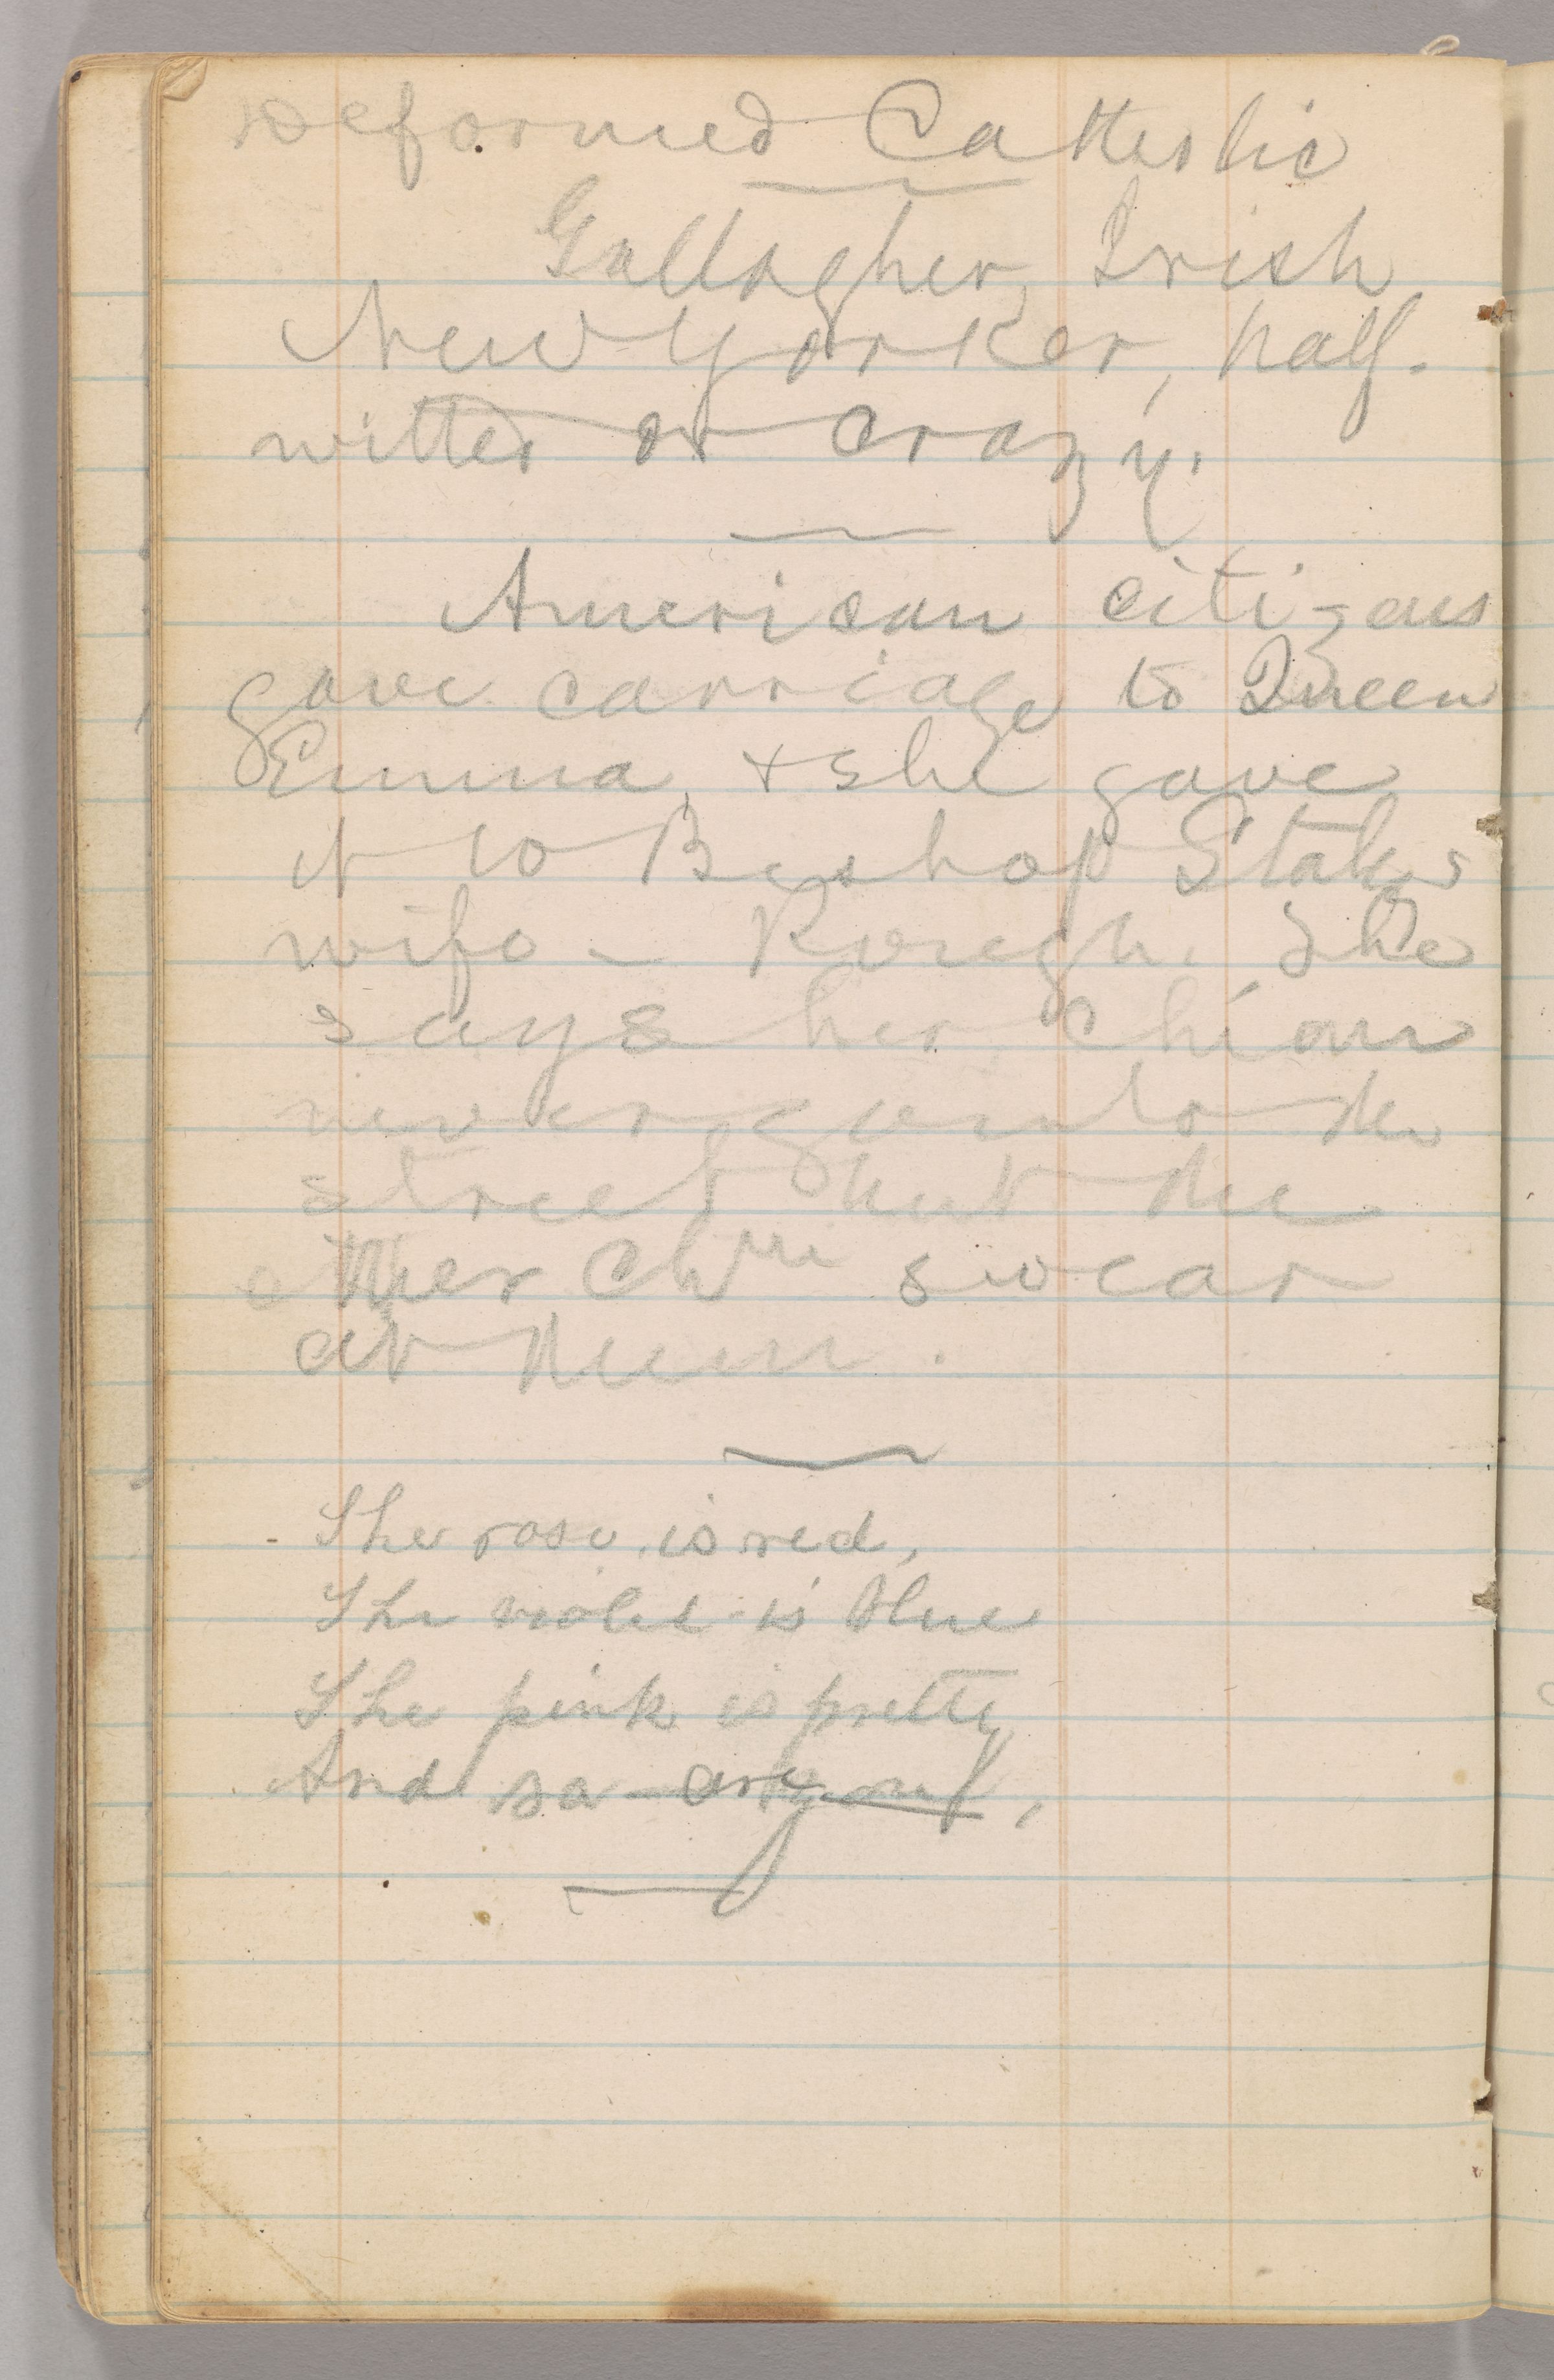 Reformed Catholic
Gallagher, Irish
New Yorker, half-
witted or crazy.
American citizens
gave carriage to Queen
Emma, + she gave
it to Bishop Staley's
wife – Rough. She
says her
never go into the
street but the
other Chn swear
at them.
The rose is red,
The violet is blue
The pink is pretty
And so are you,